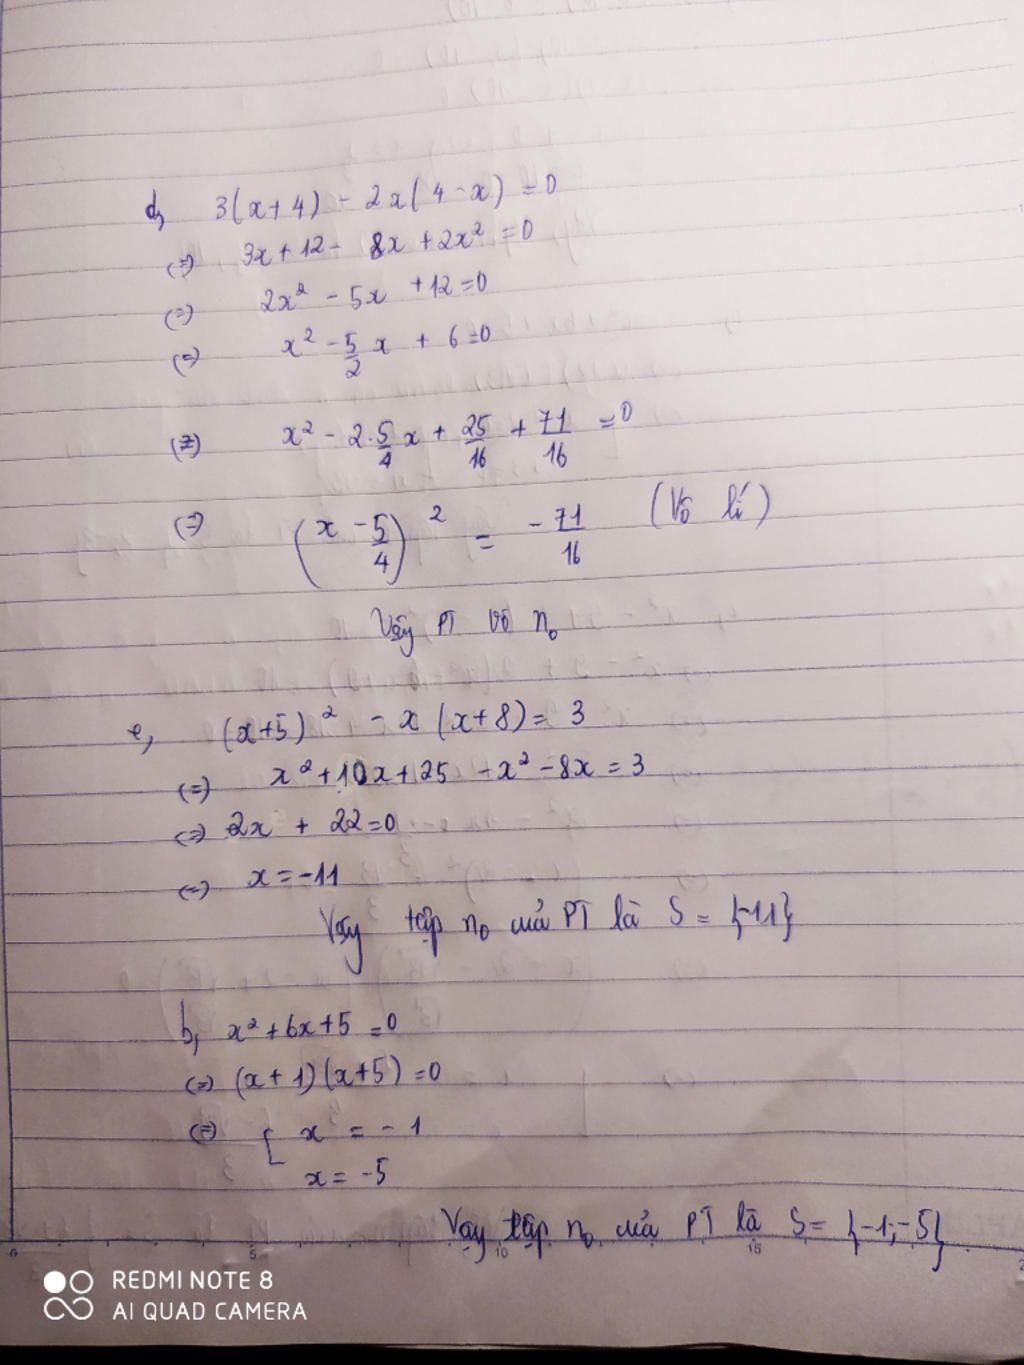 d, 3(x+4) - 2x(4-x) = 0
(=) 3x + 12 - 8x + 2x² = 0
(=) 2x² - 5x + 12 = 0
(=) x² - 5/2 x + 6 = 0
(=) x² - 2.5/4 x + 25/16 + 71/16 = 0
(=) (x - 5/4)² = -71/16 (Vô lí)
Vậy PT vô n₀
e, (x+5)² - x(x+8) = 3
(=) x² + 10x + 25 - x² - 8x = 3
(=) 2x + 22 = 0
(=) x = -11
Vậy tập n₀ của PT là S = {-11}
b, x² + 6x + 5 = 0
(=) (x+1)(x+5) = 0
(=) [ x = -1
x = -5
Vậy tập n₀ của PT là S = {-1; -5}
0 5 10 15 2
REDMI NOTE 8
AI QUAD CAMERA